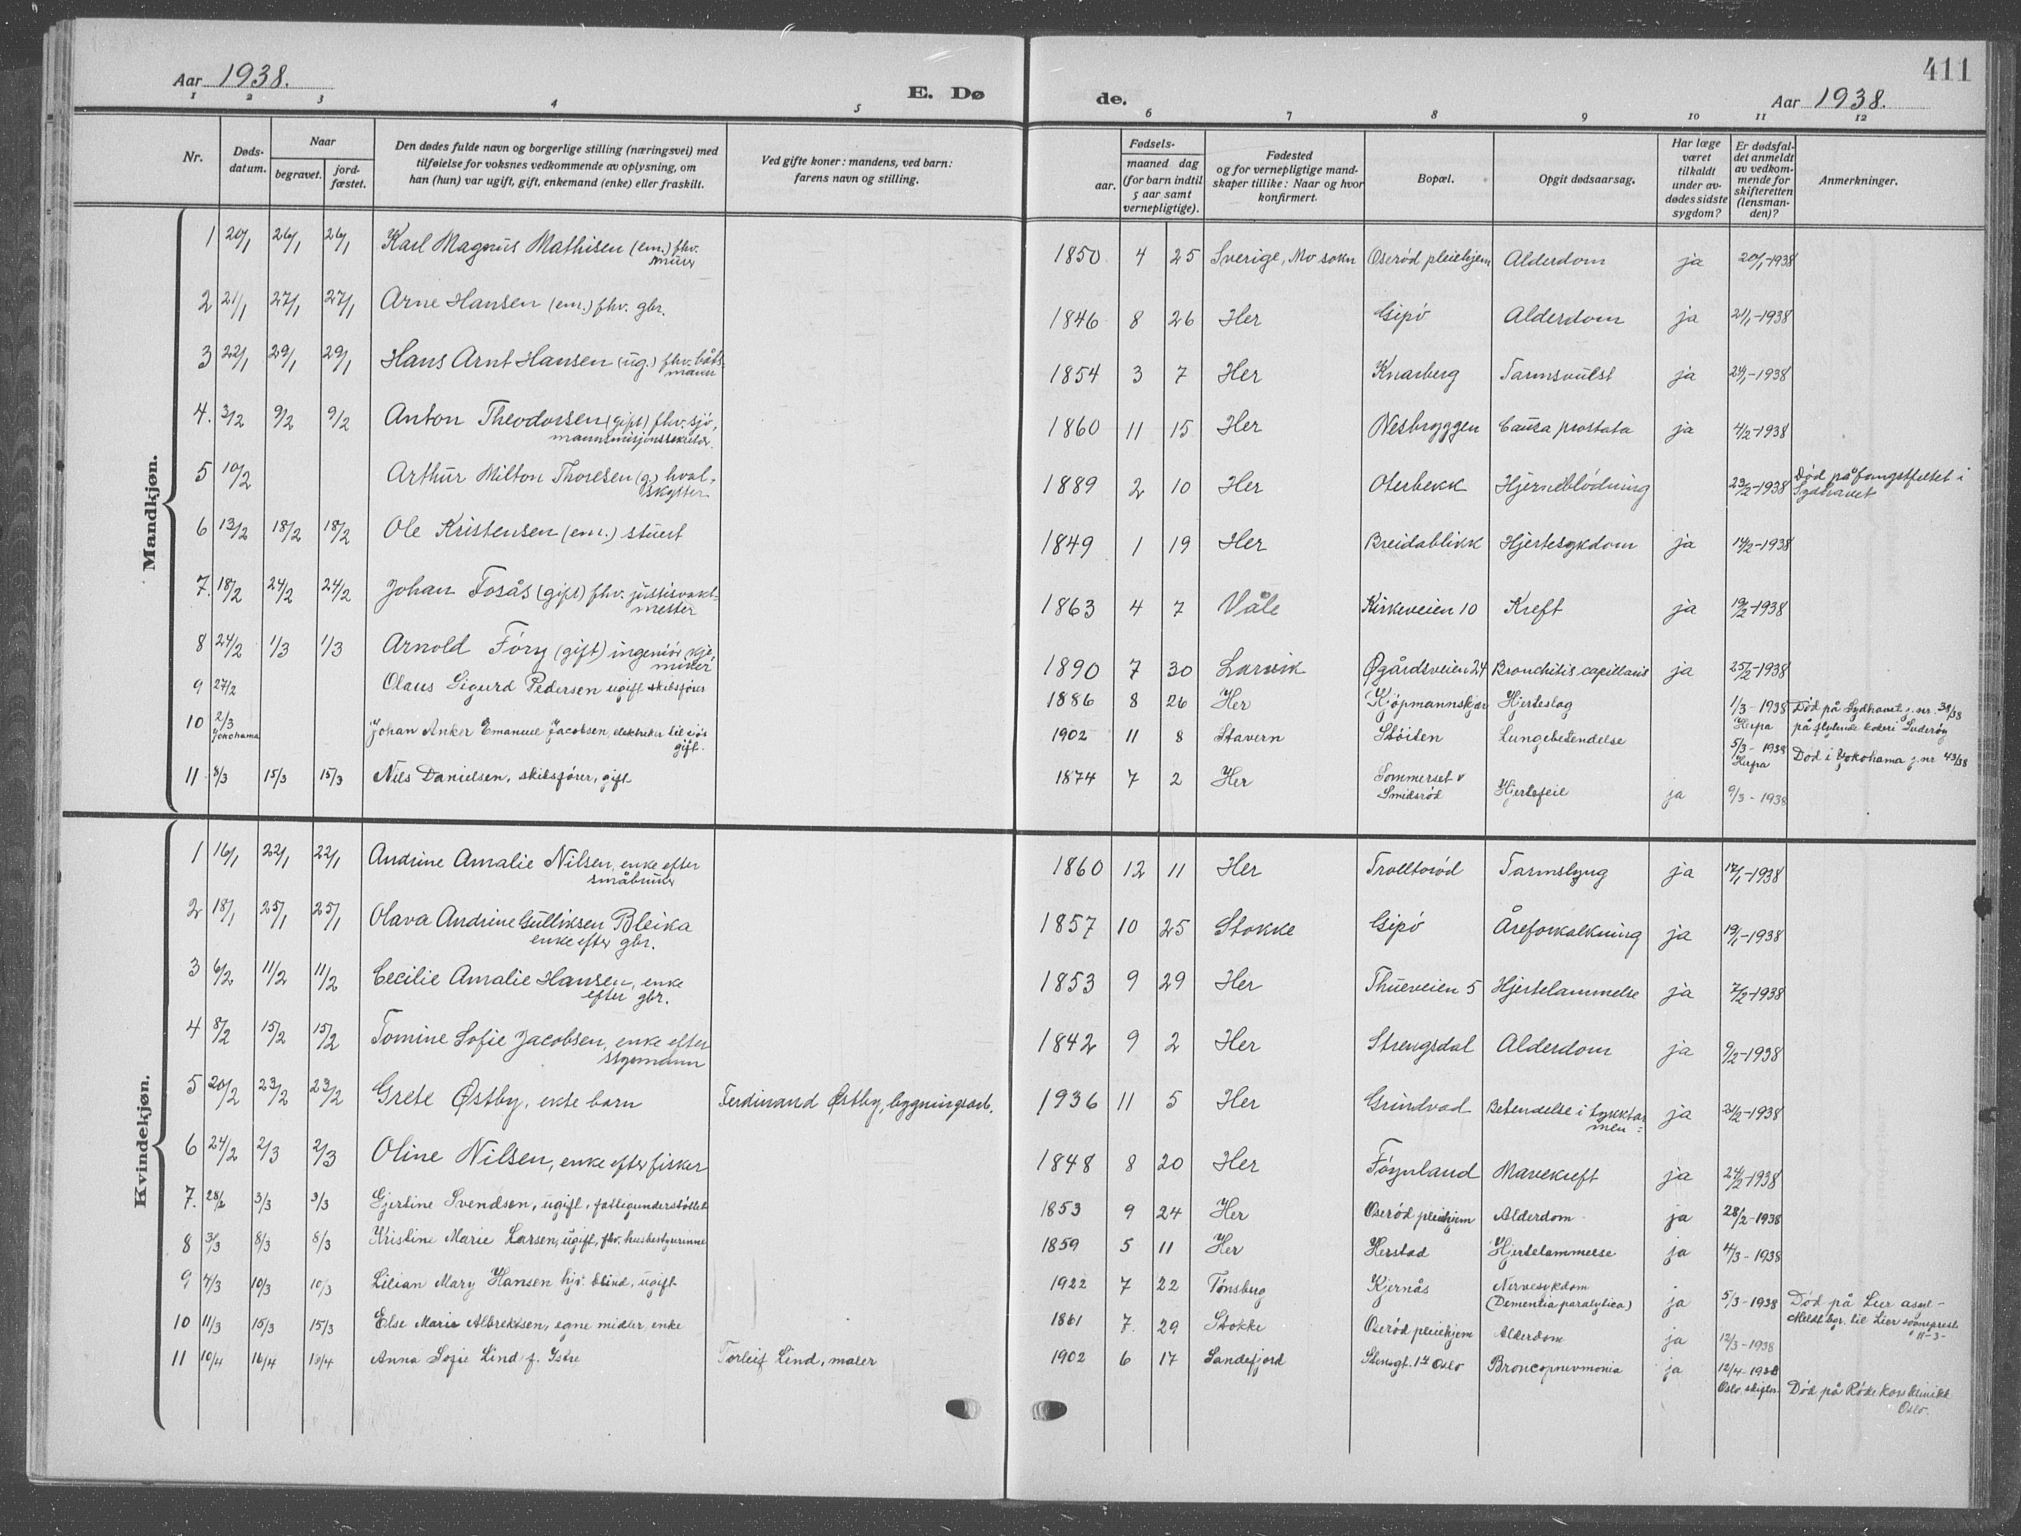 Aar 1938.
E. Dø
1 2 3 4 5
Nr.
Døds-
datum.
Naar
begravet.
jord-
fæstet.
Den dødes fulde navn og borgerlige stilling (næringsvei) med
tilføielse for voksnes vedkommende av oplysning, om
han (hun) var ugift, gift, enkemand (enke) eller fraskilt.
Ved gifte koner: mandens, ved barn:
farens navn og stilling.
Mandkjøn.
1 20/1 26/1 26/1 Karl Magnus Mathisen (em.) fhv.
murer
2 21/1 27/1 27/1 Arne Hansen (em.) fhv. gbr.
3 22/1 29/1 29/1 Hans Arnt Hansen (ug.) fhv. båts-
mann
4. 3/2 9/2 9/2 Anton Theodorsen (gift) fhv. sjø-
mannsmisjonssekretær
5 10/2 Arthur Milton Thoresen (g.) hval-
skytter
6 13/2 18/2 18/2 Ole Kristensen (em.) stuert
7. 18/2 24/2 24/2 Johan Fosås (gift) fhv. justisvakt-
mester
8 24/2 1/3 1/3 Arnold Føry (gift) ingeniør kje-
miker
9 27/2 Olaus Sigurd Pedersen ugift skibsfører
10 2/3 Johan Anker Emanuel Jacobsen, elektriker til sjøs
Yokohama gift.
11 8/3 15/3 15/3 Nils Danielsen, skibsfører, gift
Kvindekjøn.
1 16/1 22/1 22/1 Andrine Amalie Nilsen, enke efter
småbruker
2 18/1 25/1 25/1 Olava Andrine Gulliksen Bleika
enke efter gbr.
3 6/2 11/2 11/2 Cecilie Amalie Hansen, enke
efter gbr.
4 8/2 15/2 15/2 Tomine Sofie Jacobsen, enke efter
styrmann
5 20/2 23/2 23/2 Grete Østby, ekte barn Ferdinand Østby, bygningsarb.
6 24/2 2/3 2/3 Oline Nilsen, enke efter fisker
7. 28/2 3/3 3/3 Gjertine Svendsen, ugift, fattigunderstøttet
8 3/3 8/3 8/3 Kristine Marie Larsen, ugift, fhv. husbestyrerinne
9 4/3 10/3 10/3 Lilian Mary Hansen hjv. blind, ugift
10 11/3 15/3 15/3 Else Marie Albrektsen, egne midler, enke
11 10/4 16/4 16/4 Anna Sofie Lind f. Istre Torleif Lind, maler
411
de.
Aar 1938.
6 7 8 9 10 11 12
Fødsels-
aar.
maaned dag
(for barn indtil
5 aar samt
vernepligtige).
Fødested
og for vernepligtige mand-
skaper tillike: Naar og hvor
konfirmert.
Bopæl.
Opgit dødsaarsag.
Har læge
været
tilkaldt
under av-
dødes sidste
sygdom?
Er dødsfal-
det anmeldt
av vedkom-
mende for
skifteretten
(lensman-
den)?
Anmerkninger.
1850 4 25 Sverige, Mo sokn Oserød pleiehjem Alderdom ja 20/1-1938
1846 8 26 Her Gipø Alderdom ja 21/1-1938
1854 3 7 Her Knarberg Tarmsvulst ja 24/1-1938
1860 11 15 Her Nesbryggen Causa prostata ja 4/2-1938
1889 2 10 Her Oterbekk Hjerneblødning 23/2-1938 Død på fangstfeltet i
Sydhavet
1849 1 19 Her Breidablikk Hjertesykdom ja 14/2-1938
1863 4 7 Våle Kirkeveien 10 Kreft ja 19/2-1938
1890 7 30 Larvik Øgårdsveien 24 Bronchitis capillaris ja 25/2-1938
1886 8 26 Her Kjøpmannskjær Hjerteslag 1/3-1938 Død på Sydhavet j.nr. 38/38
Herpa på flytende kokeri Suderøy
1902 11 8 Stavern Støiten Lungebetendelse 5/3-1938
Herpa Død i Yokohama j.nr 43/38
1874 7 2 Her Sommerset v
Smidsrød Hjertefeil ja 9/3-1938
1860 12 11 Her Trolltorød Tarmslyng ja 17/1-1938
1857 10 25 Stokke Gipø Åreforkalkning ja 19/1-1938
1853 9 29 Her Thueveien 5 Hjertelammelse ja 7/2-1938
1842 9 2 Her Strengsdal Alderdom ja 9/2-1938
1936 11 5 Her Grindvad Betendelse i tykktar-
men ja 21/2-1938
1848 8 20 Her Føynland Mavekreft ja 24/2-1938
1853 9 24 Her Oserød pleiehjem Alderdom ja 28/2-1938
1859 5 11 Her Herstad Hjertelammelse ja 4/3-1938
1922 7 22 Tønsberg Kjernås Nervesykdom
(Dementia paralytica) ja 5/3-1938 Død på Lier asyl-
Meldt bgr. til Lier sogneprest
11-3-
1861 7. 29 Stokke Oserød pleiehjem Alderdom ja 12/3-1938
1902 6 17 Sandefjord Stensgt. 14 Oslo Broncopnevmonia ja 12/4-1938
Oslo skifter. Død på Røde Kors klinikk
Oslo.